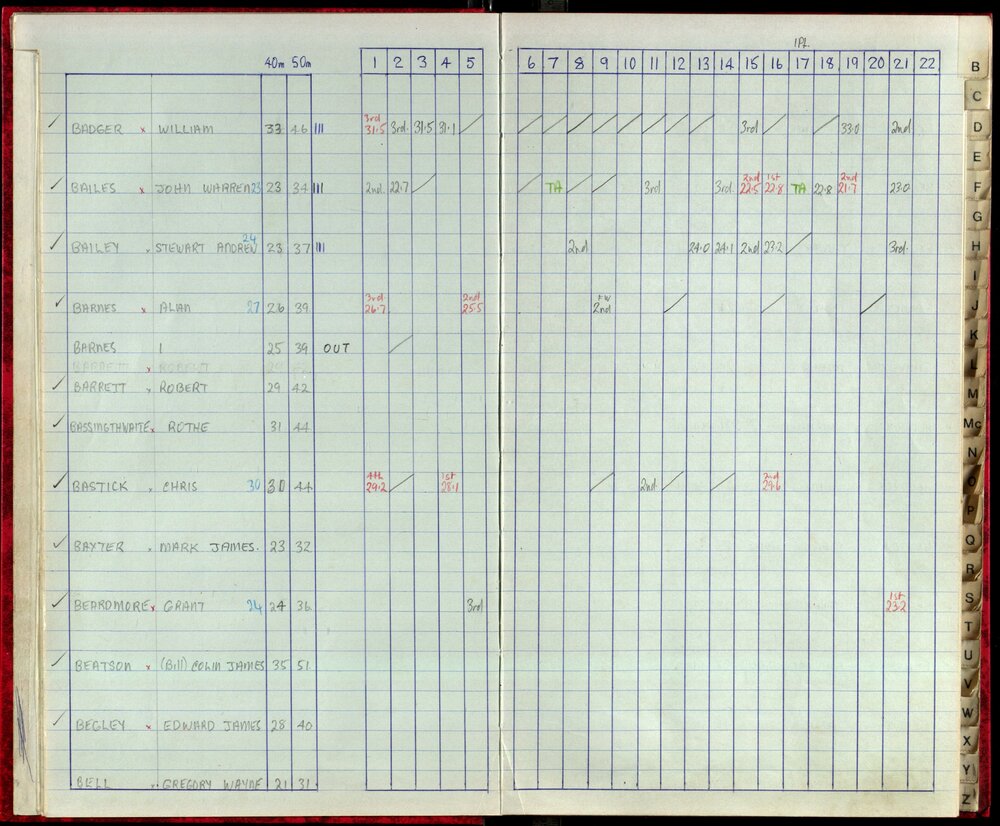 IPL
40m 50m 1 2 3 4 5 6 7 8 9 10 11 12 13 14 15 16 17 18 19 20 21 22
✓ BADGER x WILLIAM 33 46 III 3rd 31.5 3rd. 31.5 31.1 / / / / / / / / / 3rd / / 33.0 2nd
✓ BAILES x JOHN WARREN 23 23 34 III 2nd. 22.7 / / TA / / 3rd 3rd 2nd 22.5 1st 22.8 TA 22.8 2nd 21.7 23.0
✓ BAILEY x STEWART ANDREW 24 23 37 III 2nd 24.0 24.1 2nd 23.2 / 3rd.
✓ BARNES x ALAN 27 26 39 3rd 26.7 2nd 25.5 2nd / / /
BARNES I 25 39 OUT /
BARRETT x ROBERT
✓ BARRETT x ROBERT 29 42
✓ BASSINGTHWAITE x ROTHE 31 44
✓ BASTICK x CHRIS 30 30 44 4th 29.2 / 1st 28.1 / 2nd / / 2nd 29.6
✓ BAXTER x MARK JAMES. 23 32
✓ BEARDMORE x GRANT 24 24 36 3rd 1st 23.2
✓ BEATSON x (Bill) COLIN JAMES 35 51
✓ BEGLEY x EDWARD JAMES 28 40
BELL x GREGORY WAYNE 21 31
B
C
D
E
F
G
H
I
J
K
L
M
Mc
N
O
P
Q
R
S
T
U
V
W
X
Y
Z